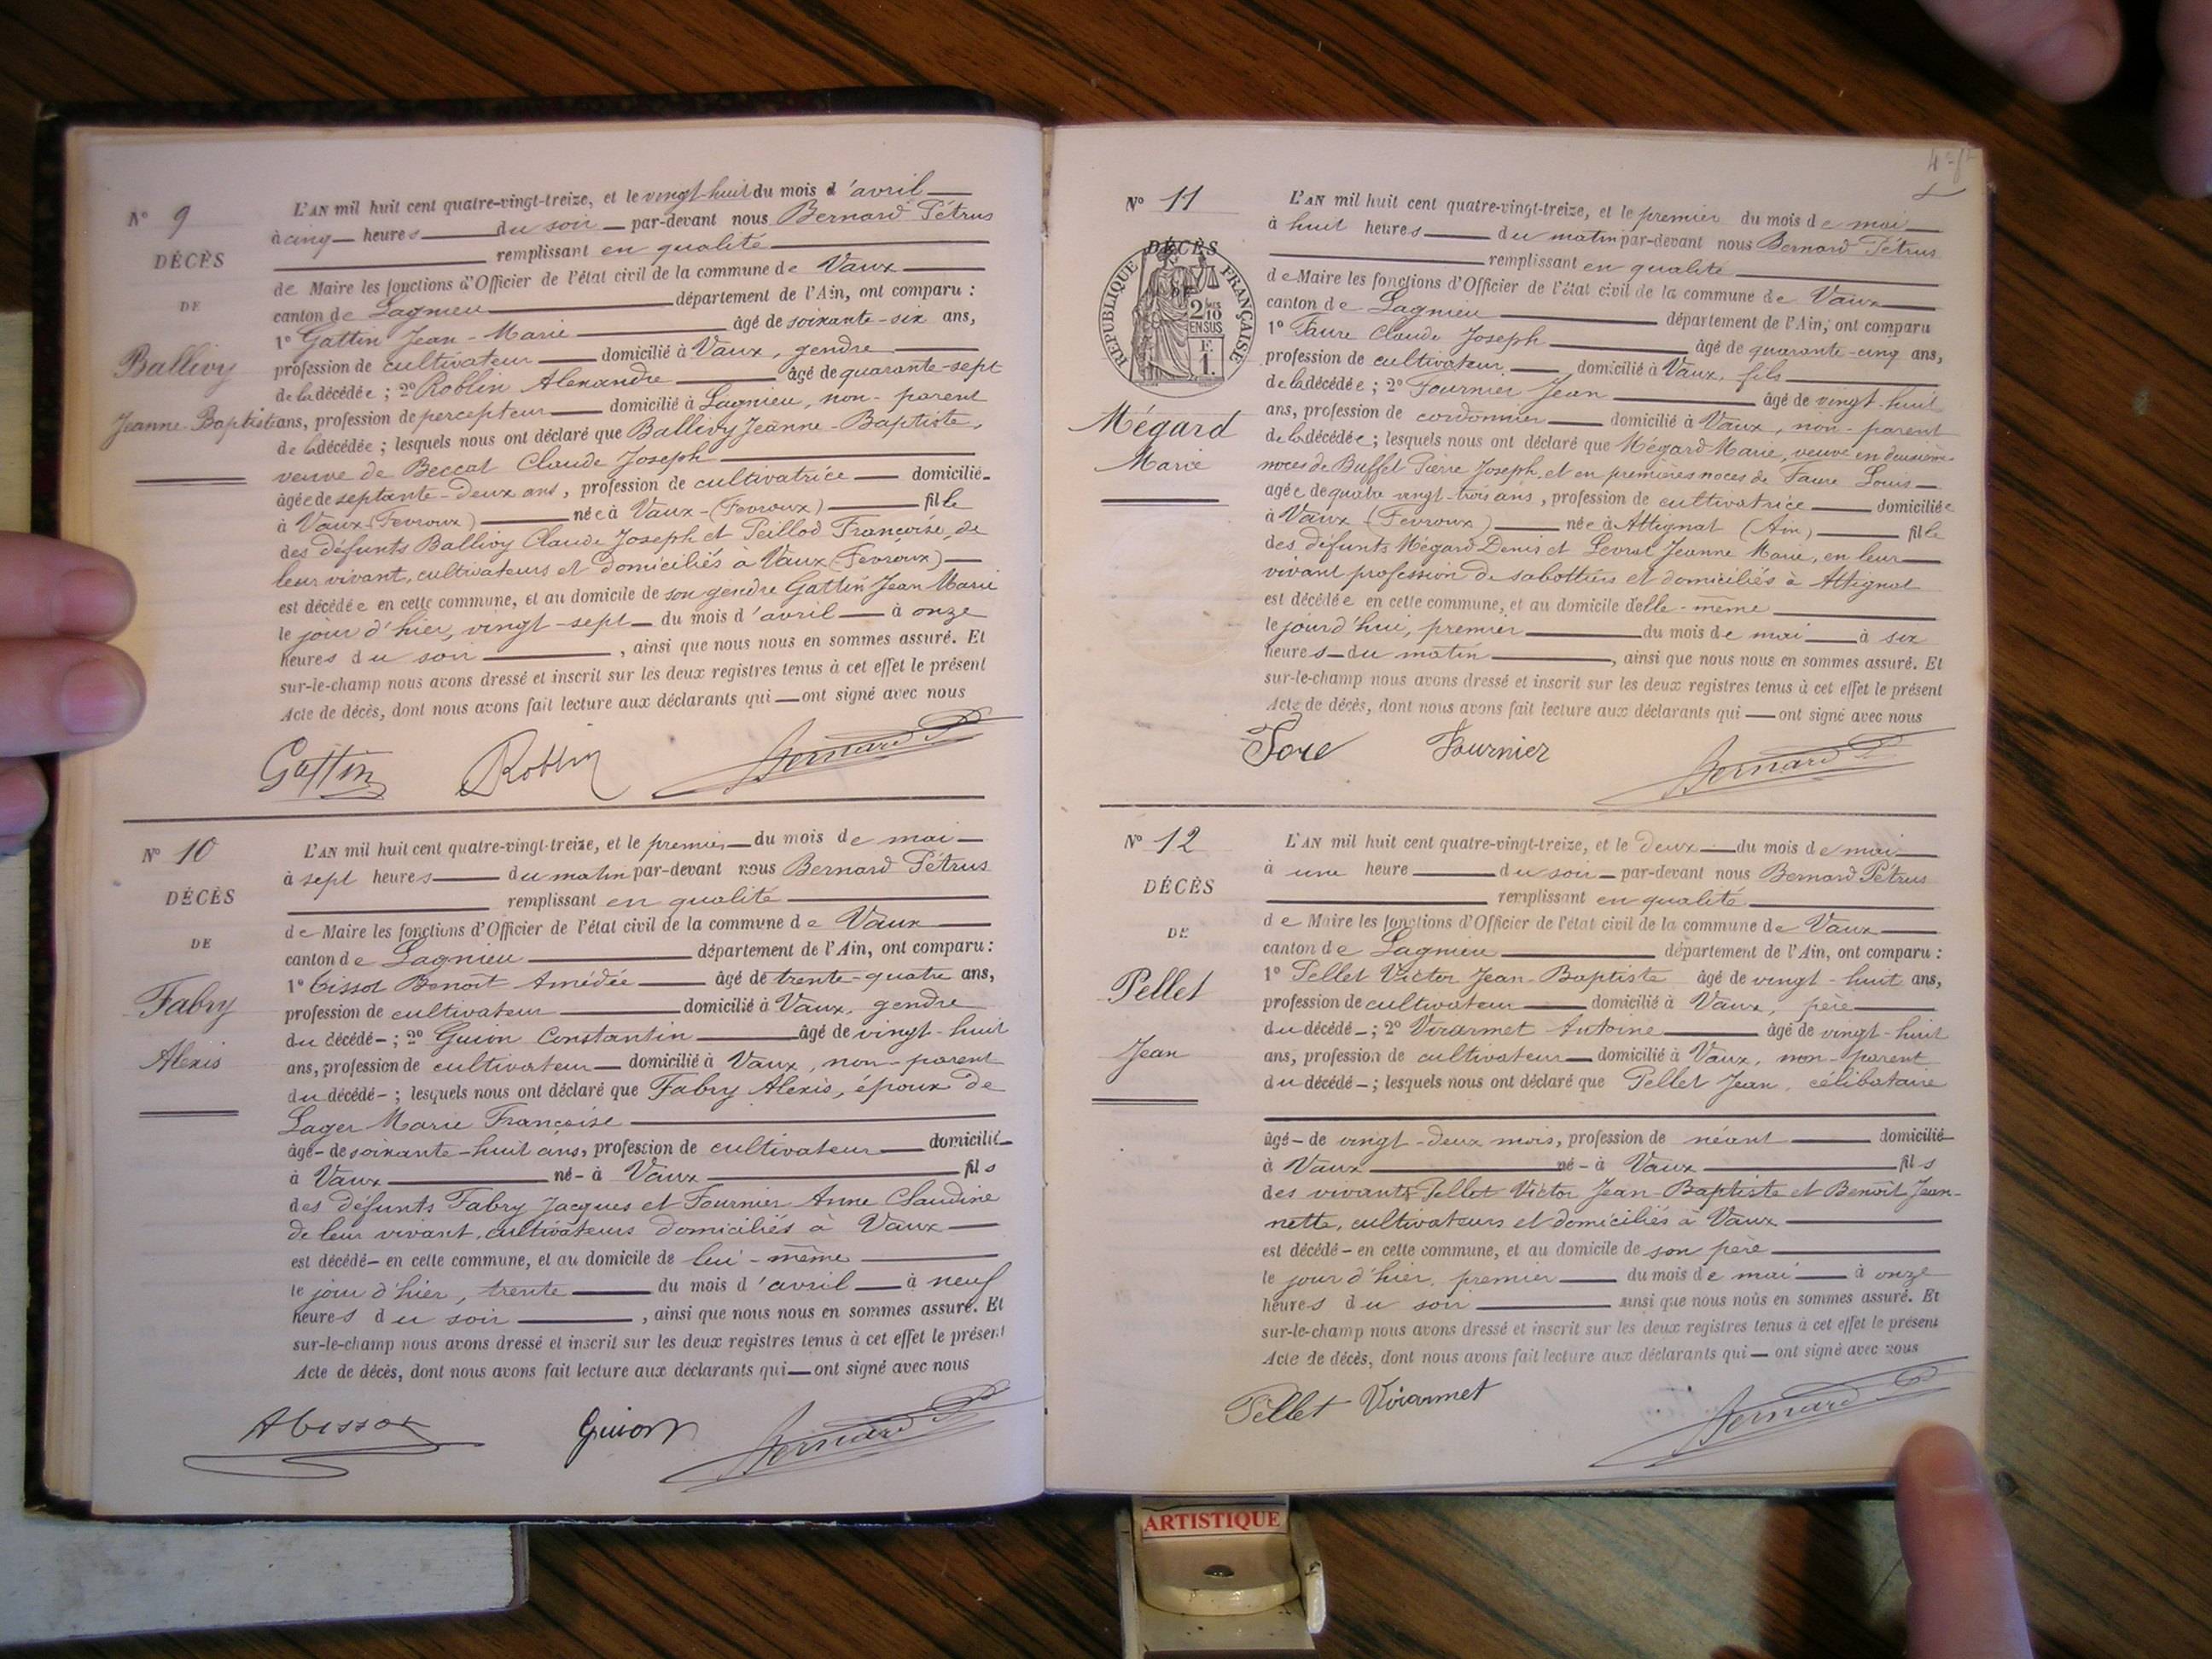 N° 9
DÉCÈS
DE
Ballivy
Jeanne-Baptiste
L'AN mil huit cent quatre-vingt-treize, et le vingt-huit du mois d'avril
à cinq heures du soir par-devant nous Bernard Pétrus
remplissant en qualité
de Maire les fonctions d'Officier de l'état civil de la commune de Vaux
canton de Lagnieu département de l'Ain, ont comparu :
1° Gattin Jean-Marie âgé de soixante-six ans,
profession de cultivateur domicilié à Vaux, gendre
de la décédée ; 2° Roblin Alexandre âgé de quarante-sept
ans, profession de percepteur domicilié à Lagnieu, non-parent
de la décédée ; lesquels nous ont déclaré que Ballivy Jeanne-Baptiste,
veuve de Beccat Claude Joseph
âgée de septante-deux ans, profession de cultivatrice domicilié
à Vaux-(Fevroux) née à Vaux-(Fevroux) fille
des défunts Ballivy Claude Joseph et Peillod Françoise, de
leur vivant, cultivateurs et domiciliés à Vaux (Fevroux)
est décédée en cette commune, et au domicile de son gendre Gattin Jean Marie
le jour d'hier, vingt-sept du mois d'avril à onze
heures du soir, ainsi que nous nous en sommes assuré. Et
sur-le-champ nous avons dressé et inscrit sur les deux registres tenus à cet effet le présent
Acte de décès, dont nous avons fait lecture aux déclarants qui ont signé avec nous
Gattin Roblin Bernard P
N° 10
DÉCÈS
DE
Fabry
Alexis
L'AN mil huit cent quatre-vingt-treize, et le premier du mois de mai
à sept heures du matin par-devant nous Bernard Pétrus
remplissant en qualité
de Maire les fonctions d'Officier de l'état civil de la commune de Vaux
canton de Lagnieu département de l'Ain, ont comparu :
1° Bissot Benoît Amédée âgé de trente-quatre ans,
profession de cultivateur domicilié à Vaux, gendre
du décédé ; 2° Guion Constantin âgé de vingt-huit
ans, profession de cultivateur domicilié à Vaux, non-parent
du décédé ; lesquels nous ont déclaré que Fabry Alexis, époux de
Lager Marie Françoise
âgé de soixante-huit ans, profession de cultivateur domicilié
à Vaux né à Vaux fils
des défunts Fabry Jacques et Fournier Anne Claudine
de leur vivant, cultivateurs domiciliés à Vaux
est décédé en cette commune, et au domicile de lui-même
le jour d'hier, trente du mois d'avril à neuf
heures du soir, ainsi que nous nous en sommes assuré. Et
sur-le-champ nous avons dressé et inscrit sur les deux registres tenus à cet effet le présent
Acte de décès, dont nous avons fait lecture aux déclarants qui ont signé avec nous
ABissot Guion Bernard P
N° 11
DÉCÈS
DE
RÉPUBLIQUE FRANÇAISE
2/10
EN SUS
F.
1.
Mégard
Marie
L'AN mil huit cent quatre-vingt-treize, et le premier du mois de mai
à huit heures du matin par-devant nous Bernard Pétrus
remplissant en qualité
de Maire les fonctions d'Officier de l'état civil de la commune de Vaux
canton de Lagnieu département de l'Ain, ont comparu
1° Faure Claude Joseph âgé de quarante-cinq ans,
profession de cultivateur domicilié à Vaux, fils
de la décédée ; 2° Fournier Jean âgé de vingt-huit
ans, profession de cordonnier domicilié à Vaux, non-parent
de la décédée ; lesquels nous ont déclaré que Mégard Marie, veuve en deuxième
noces de Buffet Pierre Joseph et en premières noces de Faure Louis
agée de quatre vingt-trois ans, profession de cultivatrice domiciliée
à Vaux (Fevroux) née à Attignat (Ain) fille
des défunts Mégard Denis et Levrat Jeanne Marie, en leur
vivant profession de sabottiers et domiciliés à Attignat
est décédée en cette commune, et au domicile d'elle-même
le jourd'hui, premier du mois de mai à six
heures du matin, ainsi que nous nous en sommes assuré. Et
sur-le-champ nous avons dressé et inscrit sur les deux registres tenus à cet effet le présent
Acte de décès, dont nous avons fait lecture aux déclarants qui ont signé avec nous
Fore Fournier Bernard P
N° 12
DÉCÈS
DE
Pellet
Jean
L'AN mil huit cent quatre-vingt-treize, et le deux du mois de mai
à une heure du soir par-devant nous Bernard Pétrus
remplissant en qualité
de Maire les fonctions d'Officier de l'état civil de la commune de Vaux
canton de Lagnieu département de l'Ain, ont comparu :
1° Pellet Victor Jean-Baptiste âgé de vingt-huit ans,
profession de cultivateur domicilié à Vaux, père
du décédé ; 2° Virarmet Antoine âgé de vingt-huit
ans, profession de cultivateur domicilié à Vaux, non-parent
du décédé ; lesquels nous ont déclaré que Pellet Jean, célibataire
âgé de vingt-deux mois, profession de néant domicilié
à Vaux né à Vaux fils
des vivants Pellet Victor Jean-Baptiste et Benoît Jean-
nette, cultivateurs et domiciliés à Vaux
est décédé en cette commune, et au domicile de son père
le jour d'hier, premier du mois de mai à onze
heures du soir ainsi que nous nous en sommes assuré. Et
sur-le-champ nous avons dressé et inscrit sur les deux registres tenus à cet effet le présent
Acte de décès, dont nous avons fait lecture aux déclarants qui ont signé avec nous
Pellet Virarmet Bernard P
ARTISTIQUE